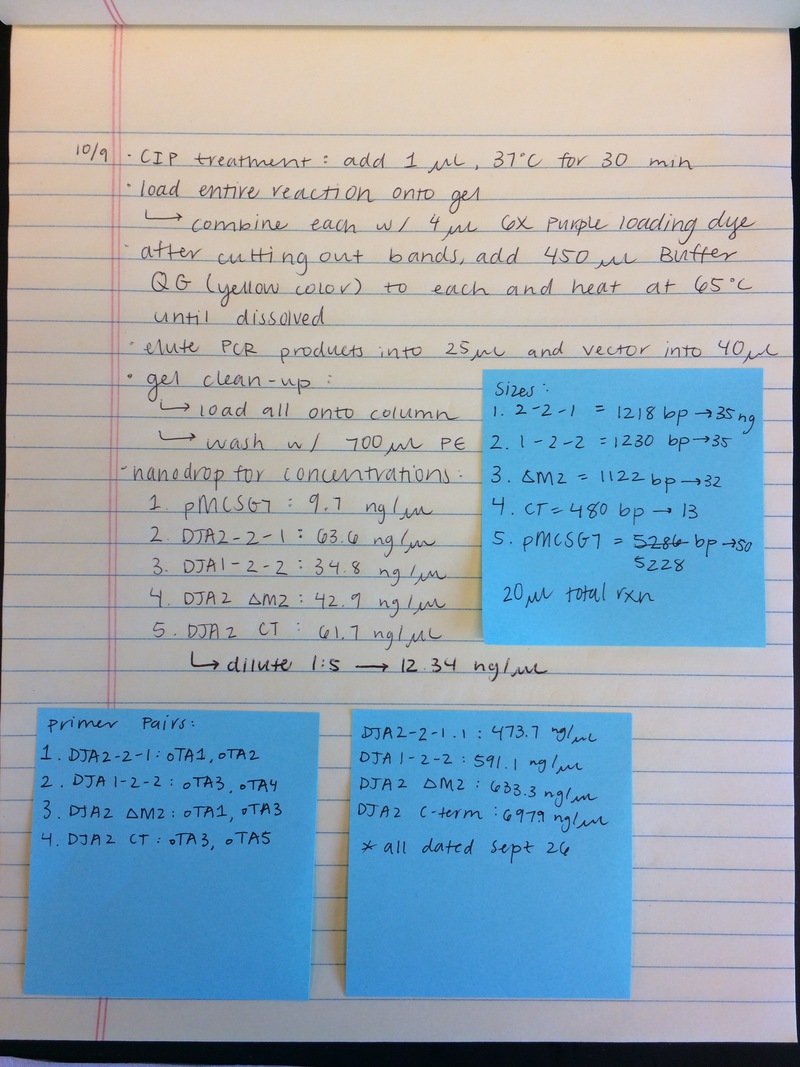 10/9 · CIP treatment: add 1 µL, 37°C for 30 min
· load entire reaction onto gel
↳ combine each w/ 4 µL 6X Purple loading dye
· after cutting out bands, add 450 µL Buffer
QG (yellow color) to each and heat at 65°C
until dissolved
· elute PCR products into 25 µL and vector into 40 µL
· gel clean-up:
↳ load all onto column
↳ wash w/ 700 µL PE
· nanodrop for concentrations:
1. pMCSG7: 9.7 ng/µL
2. DJA2-2-1: 63.6 ng/µL
3. DJA1-2-2: 34.8 ng/µL
4. DJA2 ΔM2: 42.9 ng/µL
5. DJA2 CT: 61.7 ng/µL
↳ dilute 1:5 → 12.34 ng/µL
Sizes:
1. 2-2-1 = 1218 bp → 35 ng
2. 1-2-2 = 1230 bp → 35
3. ΔM2 = 1122 bp → 32
4. CT = 480 bp → 13
5. pMCSG7 = 5286 bp → 50
5228
20 µL total rxn
Primer Pairs:
1. DJA2-2-1: oTA1, oTA2
2. DJA1-2-2: oTA3, oTA4
3. DJA2 ΔM2: oTA1, oTA3
4. DJA2 CT: oTA3, oTA5
DJA2-2-1.1: 473.7 ng/µL
DJA1-2-2: 591.1 ng/µL
DJA2 ΔM2: 633.3 ng/µL
DJA2 C-term: 697.9 ng/µL
* all dated Sept 26